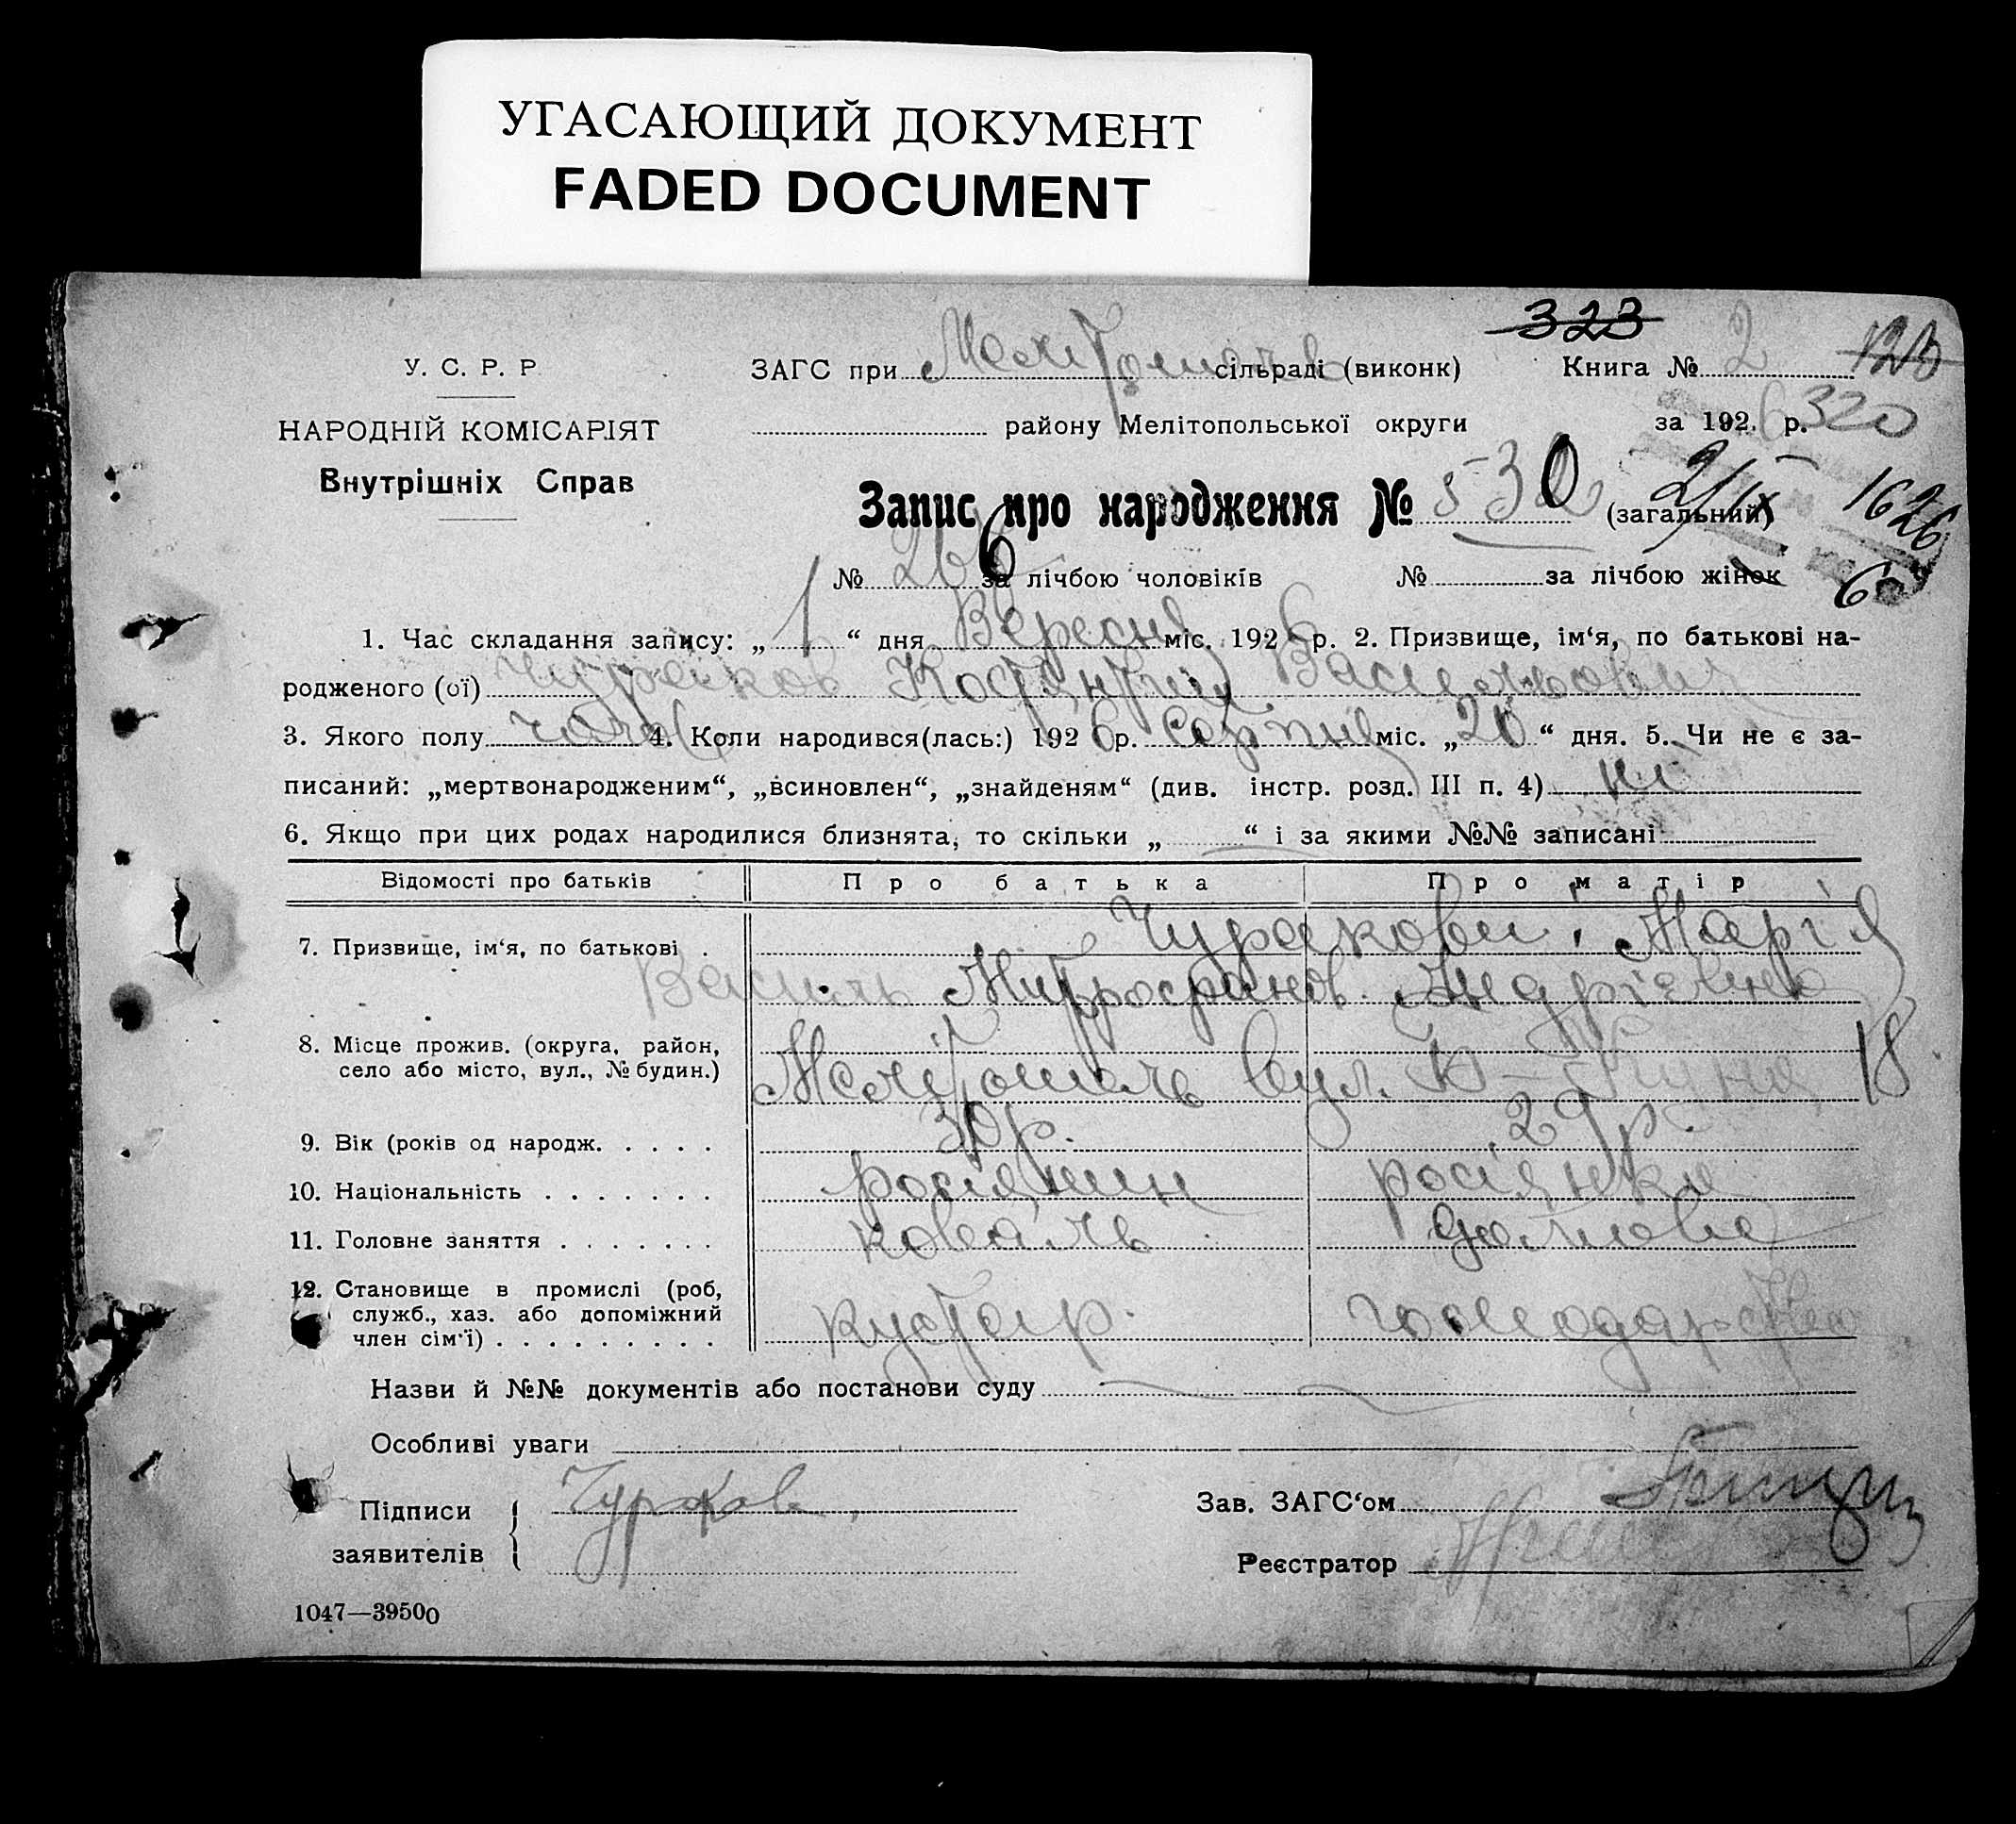 УГАСАЮЩИЙ ДОКУМЕНТ
FADED DOCUMENT
323
У. С. Р. Р
ЗАГС при сільраді (виконк) Книга № 2 120
НАРОДНІЙ КОМІСАРІЯТ
району Мелітопольської округи за 1926 р. 320
Внутрішніх Справ
Запис про народження № 530 (загальний) 2/IX 1626
№ 26 за лічбою чоловіків № за лічбою жінок 6
1. Час складання запису: „ 1 “ дня Вересня міс. 1926 р. 2. Призвище, ім‘я, по батькові на-
родженого (ої) Чураков Костянтин Васильович
3. Якого полу чол. 4. Коли народився(лась:) 1926 р. Серпня міс. „ 20 “ дня. 5. Чи не є за-
писаний: „мертвонародженим“, „всиновлен“, „знайденям“ (див. інстр. розд. III п. 4) ні
6. Якщо при цих родах народилися близнята, то скільки „ “ і за якими №№ записані
Відомості про батьків Про батька Про матір
7. Призвище, ім‘я, по батькові . Чуракови, Марія
Василь Митрофанов. Андріевна
8. Місце прожив. (округа, район,
село або місто, вул., № будин.) Мелітополь вул. 18
9. Вік (років од народж. . . . . 30 р. 29 р.
10. Національність . . . . . . . росіянин росіянка
11. Головне заняття . . . . . . . коваль домове
12. Становище в промислі (роб,
служб., хаз. або допоміжний
член сім‘ї) . . . . . . . . . кустар. господарство
Назви й №№ документів або постанови суду
Особливі уваги
Підписи Чураков
заявителів
Зав. ЗАГС‘ом
Реєстратор
1047—39500